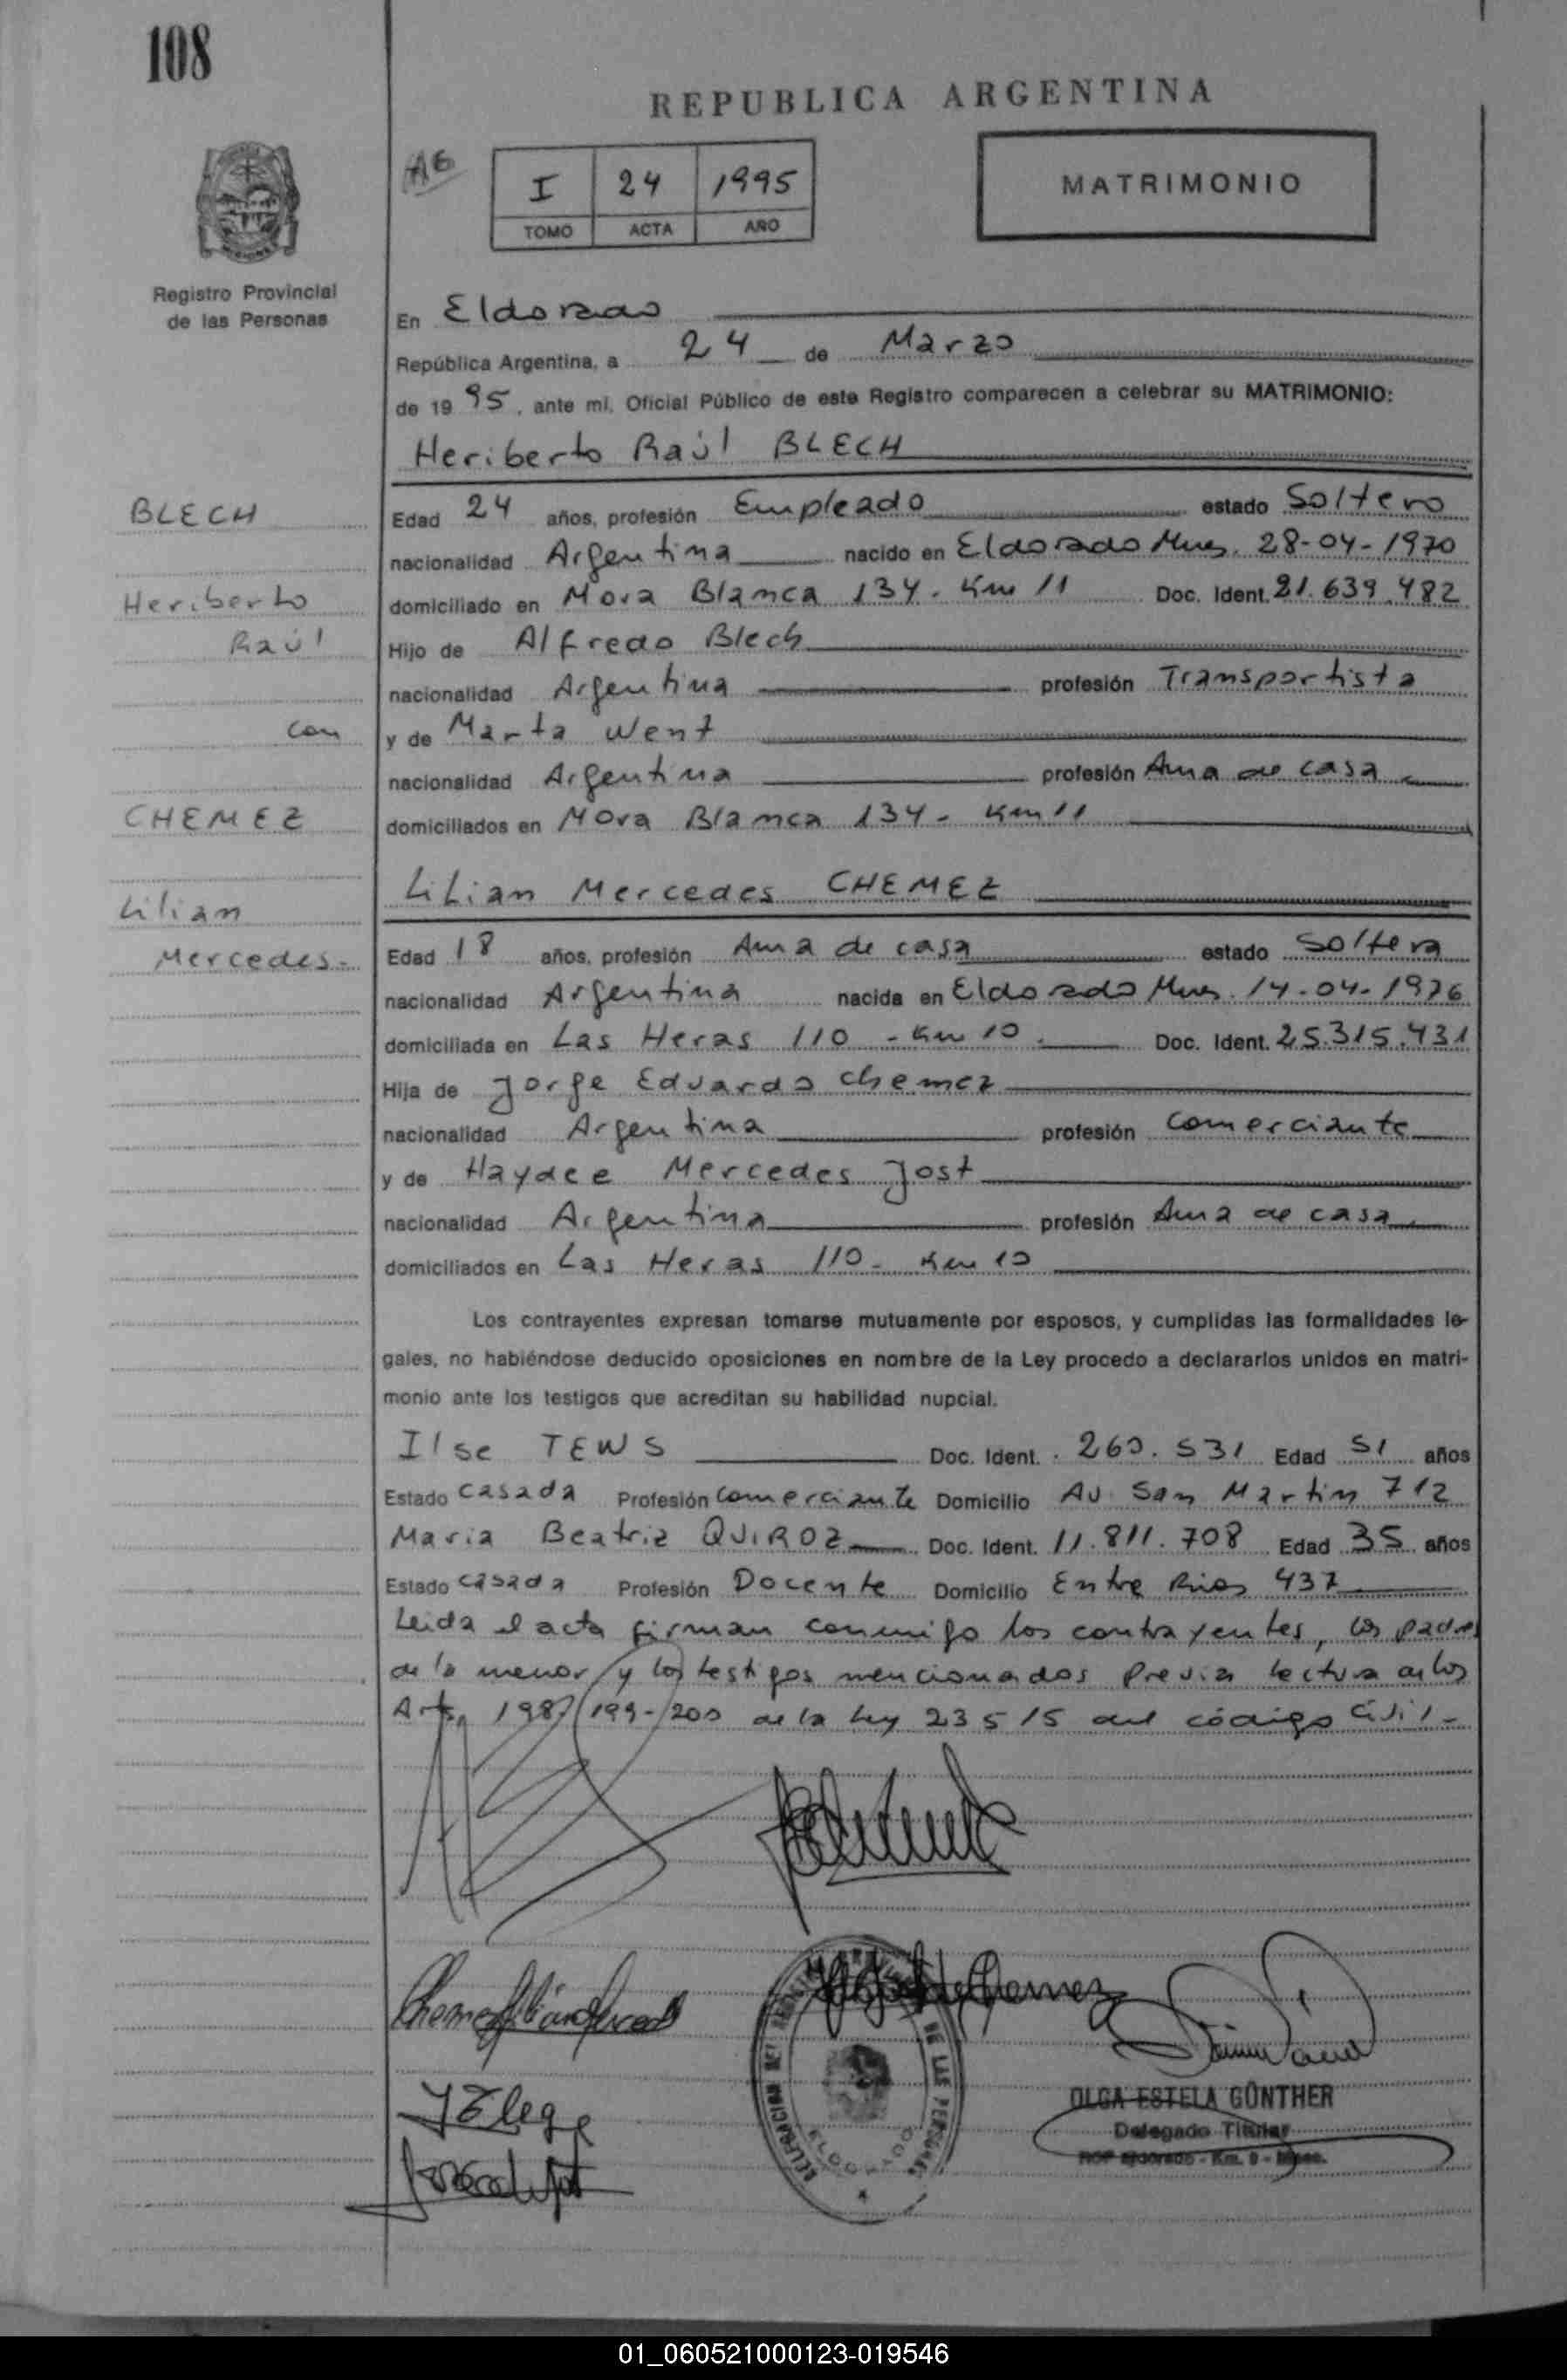 108
REPUBLICA ARGENTINA
I 24 1995
TOMO ACTA AÑO
MATRIMONIO
Registro Provincial
de las Personas
En Eldorado
República Argentina, a 24 de Marzo
de 1995, ante mi, Oficial Público de este Registro comparecen a celebrar su MATRIMONIO:
Heriberto Raúl BLECH
BLECH
Heriberto
Raúl
con
CHEMEZ
Lilian
Mercedes.-
Edad 24 años, profesión Empleado estado Soltero
nacionalidad Argentina nacido en Eldorado Mnes. 28-04-1970
domiciliado en Mora Blanca 134. Km 11 Doc. Ident. 21.639.482
Hijo de Alfredo Blech
nacionalidad Argentina profesión Transportista
y de Marta Went
nacionalidad Argentina profesión Ama de casa
domiciliados en Mora Blanca 134- Km 11
Lilian Mercedes CHEMEZ
Edad 18 años, profesión Ama de casa estado Soltera
nacionalidad Argentina nacida en Eldorado Mnes. 14-04-1976
domiciliada en Las Heras 110 - Km 10. Doc. Ident. 25.315.431
Hija de Jorge Eduardo Chemez
nacionalidad Argentina profesión Comerciante
y de Haydee Mercedes Jost
nacionalidad Argentina profesión Ama de casa
domiciliados en Las Heras 110- Km 10
Los contrayentes expresan tomarse mutuamente por esposos, y cumplidas las formalidades le-
gales, no habiéndose deducido oposiciones en nombre de la Ley procedo a declararlos unidos en matri-
monio ante los testigos que acreditan su habilidad nupcial.
Ilse TEWS Doc. Ident. . 260.531 Edad 51 años
Estado Casada Profesión Comerciante Domicilio Av. San Martin 712
Maria Beatriz QUIROZ Doc. Ident. 11.811.708 Edad 35 años
Estado Casada Profesión Docente Domicilio Entre Rios 437
Leida el acta firman conmigo los contrayentes, los padres
de la menor y los testigos mencionados previa lectura de los
Arts. 198/199-/200 de la ley 23515 del código civil-
OLGA ESTELA GÜNTHER
Delegado Titular
ELDORADO
01_060521000123-019546